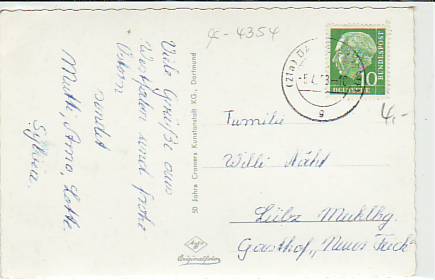 4354
Viele Grüße aus
Westfalen und frohe
Ostern
sendet
Mutti, Arno, Lotte
50 Jahre Cramers Kunstanstalt KG., Dortmund
Agfa
Originalfoto
(21a)
10
DEUTSCHE
BUNDESPOST
g
4,-
Familie
Willi
Lübz
Gasthof „Neuer